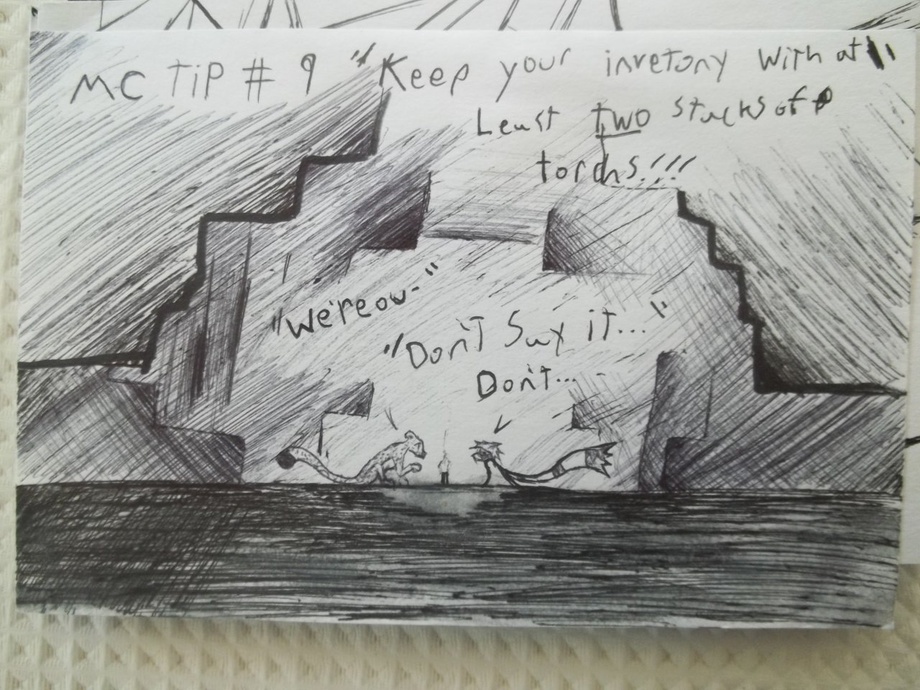 MC TiP # 9 "Keep your invetory with at
Least two stacks of
torchs!!!
"We'reow-"
"Don't Say it..."
Don't...